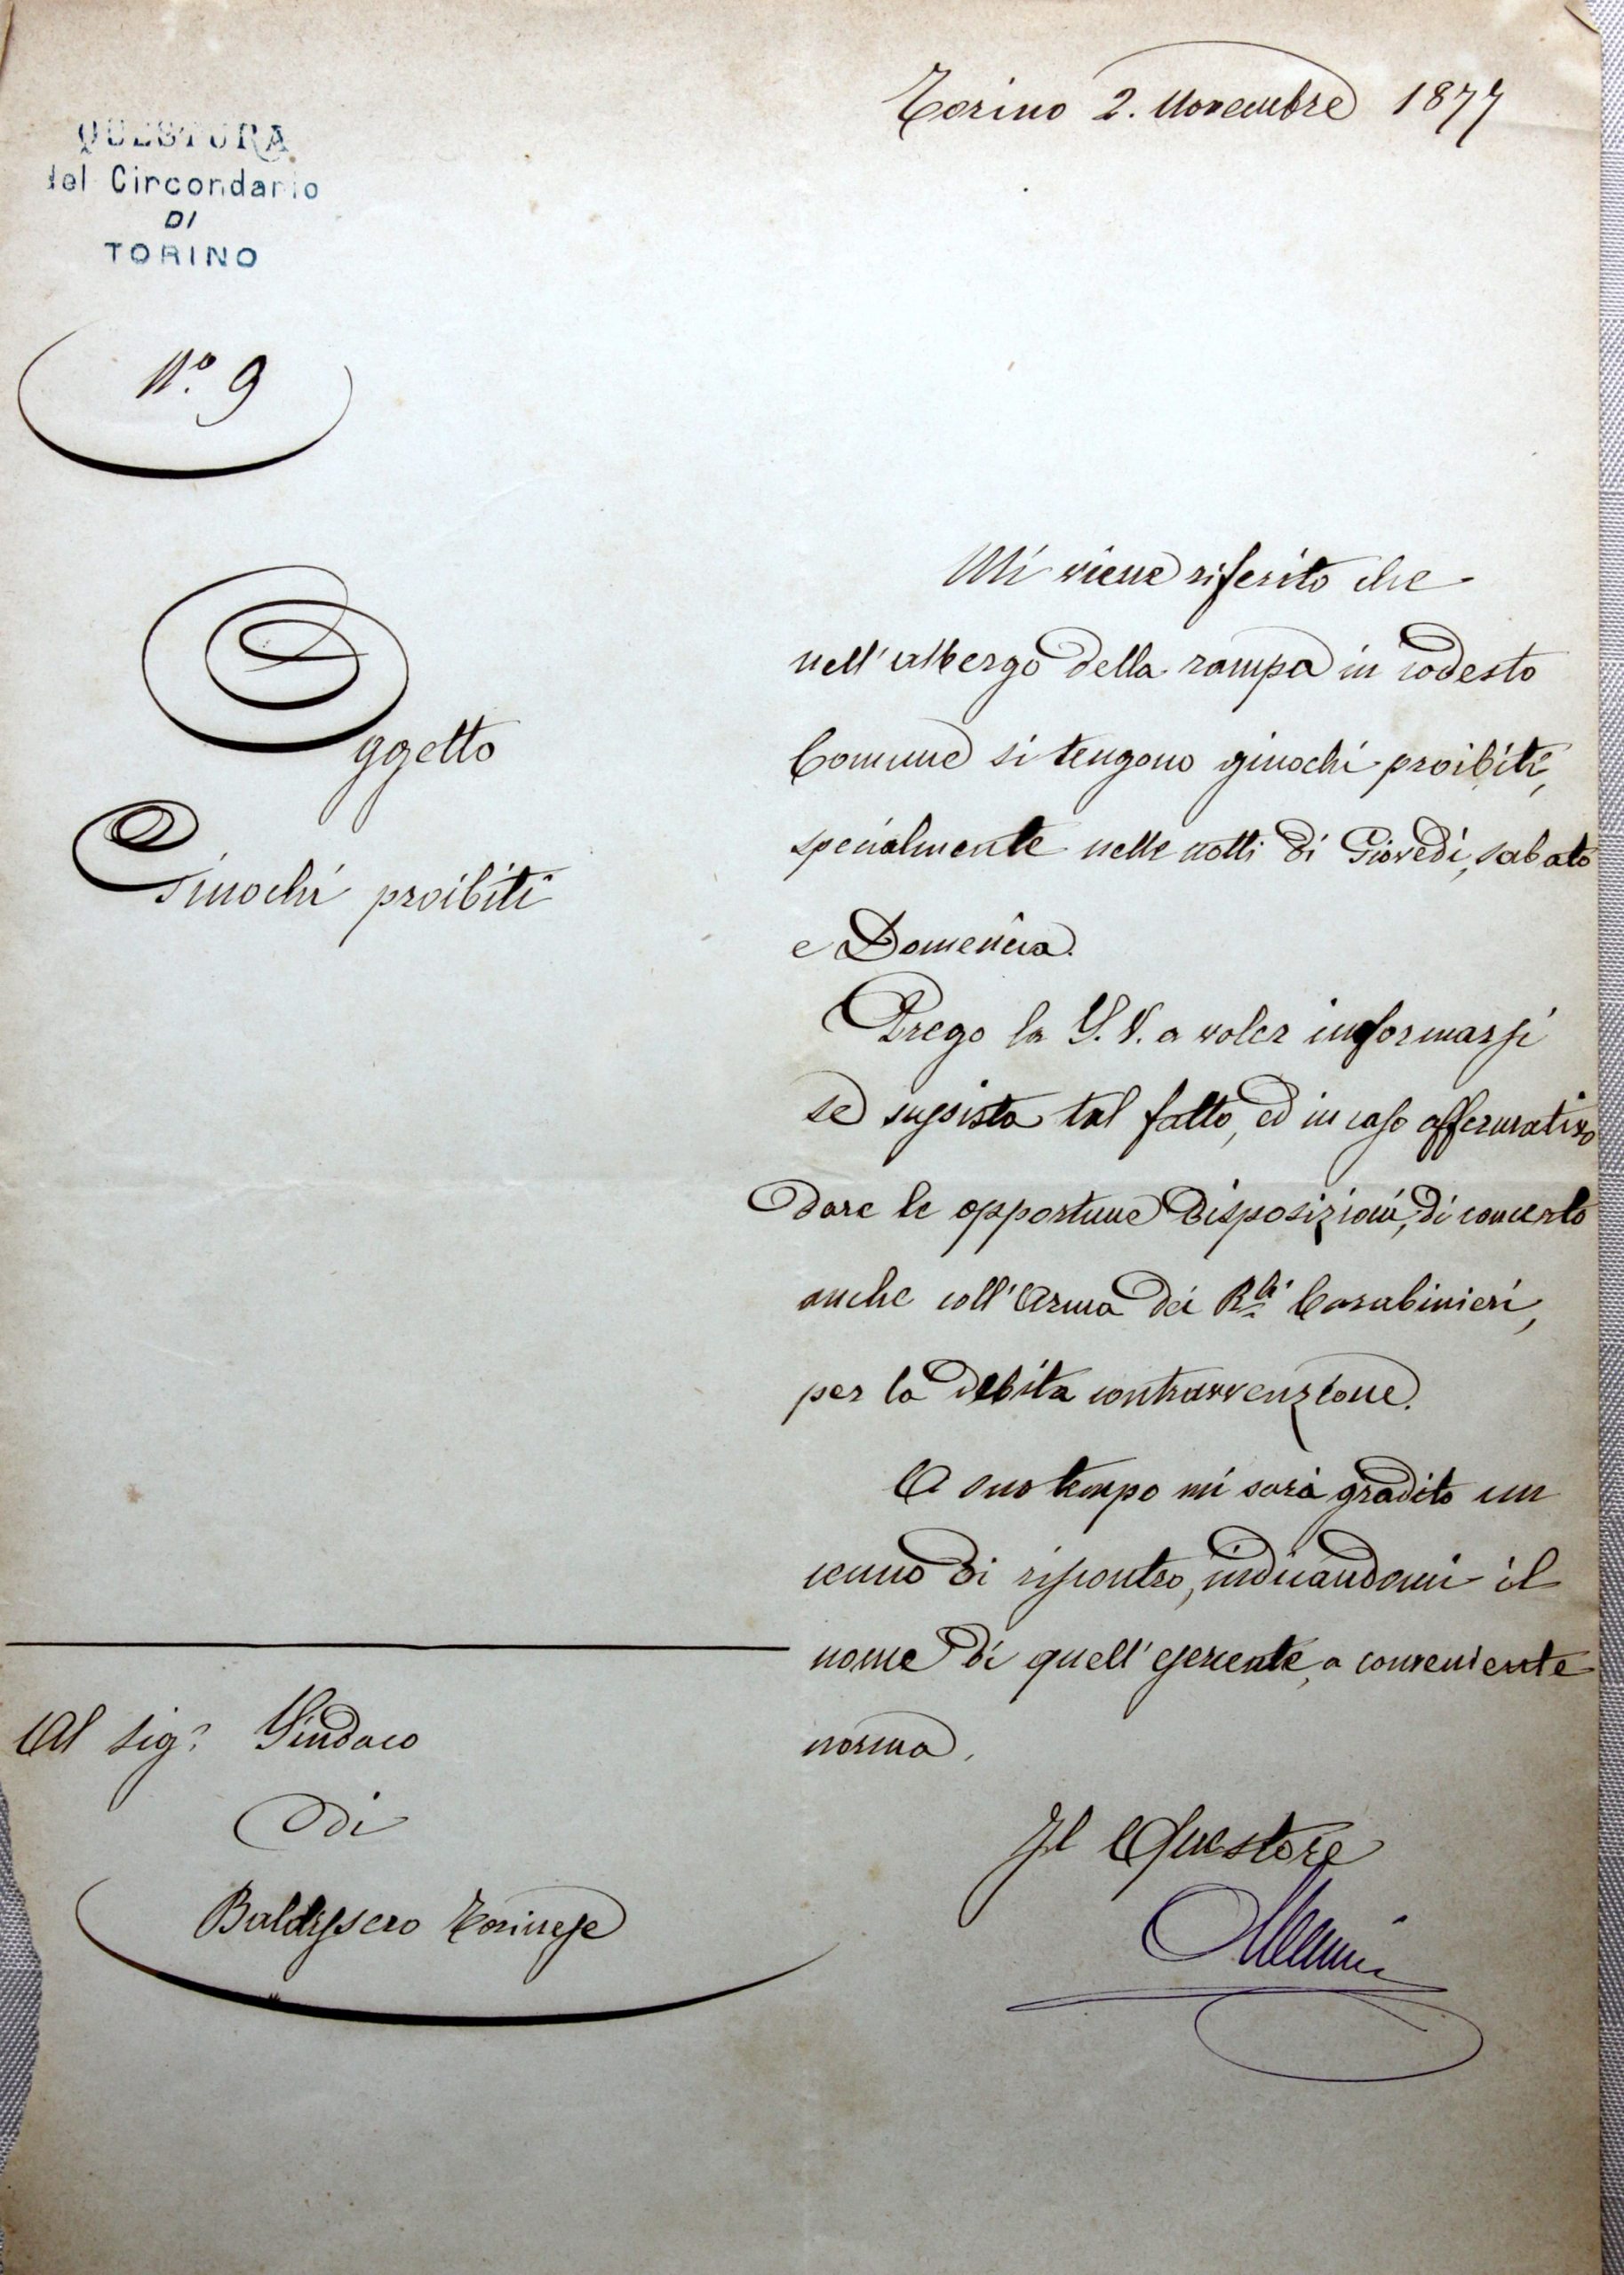 Torino 2. Novembre 1877
QUESTURA
del Circondario
DI
TORINO
N.º 9
Oggetto
Giuochi proibiti
Mi viene riferito che
nell'albergo della rampa in codesto
Comune si tengono giuochi proibiti,
specialmente nelle notti di Giovedì, sabato
e Domenica.
Prego la S. V. a voler informarsi
se sussista tal fatto, ed in caso affermativo
dare le opportune disposizioni, di concerto
anche coll'Arma dei R.li Carabinieri,
per la debita contravvenzione.
A suo tempo mi sarà gradito un
cenno di riscontro, indicandomi il
nome di quell'esercente, a conveniente
norma.
Il Questore
Al Sig.r Sindaco
di
Baldissero Torinese